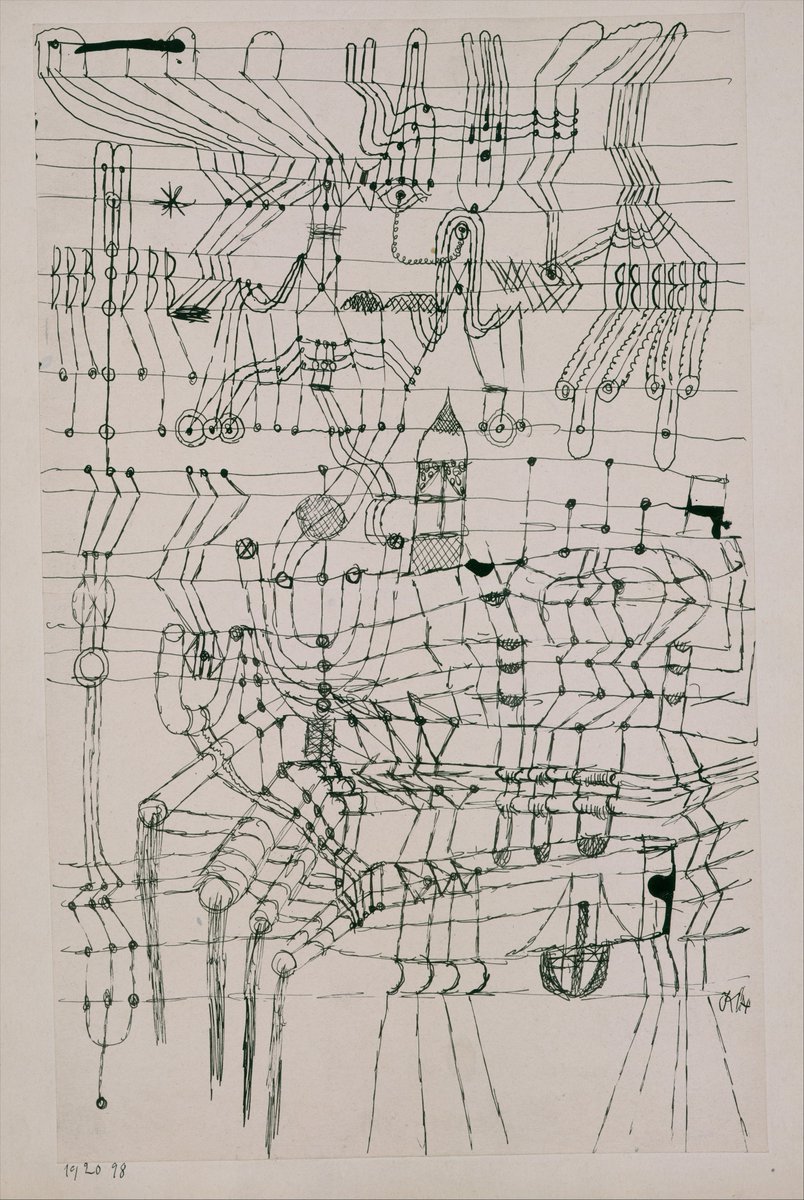 Klee
1920 98